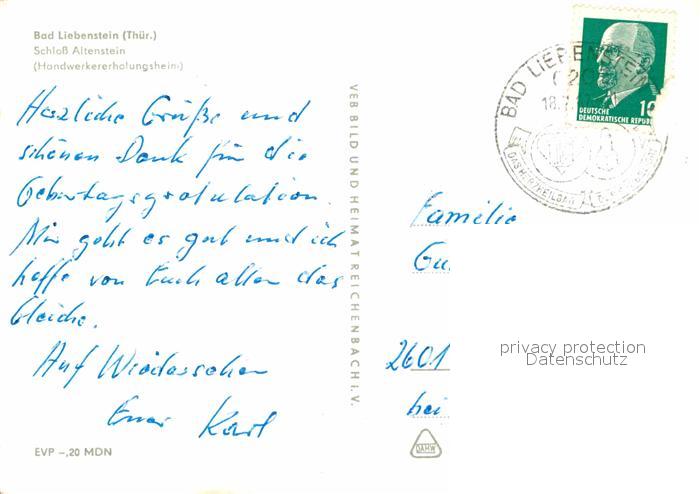 Bad Liebenstein (Thür.)
Schloß Altenstein
(Handwerkererholungsheim)
Herzliche Grüße und
schönen Dank für die
Geburtagsgratulation.
Mir geht es gut und ich
hoffe von Euch allen das
Gleiche.
Auf Wiedersehen
Euer Karl
EVP –,20 MDN
VEB BILD UND HEIMAT REICHENBACH i. V.
BAD LIEBENSTEIN
18.7
DEUTSCHE
DEMOKRATISCHE REPUBL
10
DAS HERZHEILBAD
Familie
Gu
2601
bei
privacy protection
Datenschutz
DAHW